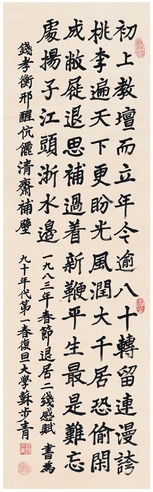 初上教壇而立年今逾八十轉留連漫誇
桃李遍天下更盼光風潤大千居恐偷閑
成敝屣退思補過着新鞭平生最是難忘
處揚子江頭浙水邊
一九八三年春節退居二綫感賦 書為
錢孝衡邢醒伉儷清齋補壁
九十年代第一春復旦大學蘇步青